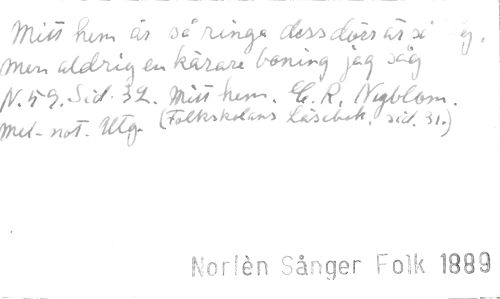 Mitt hem är så ringa dess dörr är så
men aldrig en kärare boning jag såg
N. 59. Sid. 32. Mitt hem. C. R. Nyblom.
mel-not. Utg. (Folkskolans Läsebok, sid. 31.)
Norlèn Sånger Folk 1889